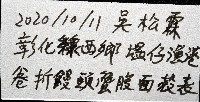 2020/10/11 吳松霖
彰化縣西鄉 塭仔漁港
卷折饅頭蟹腹面殼表